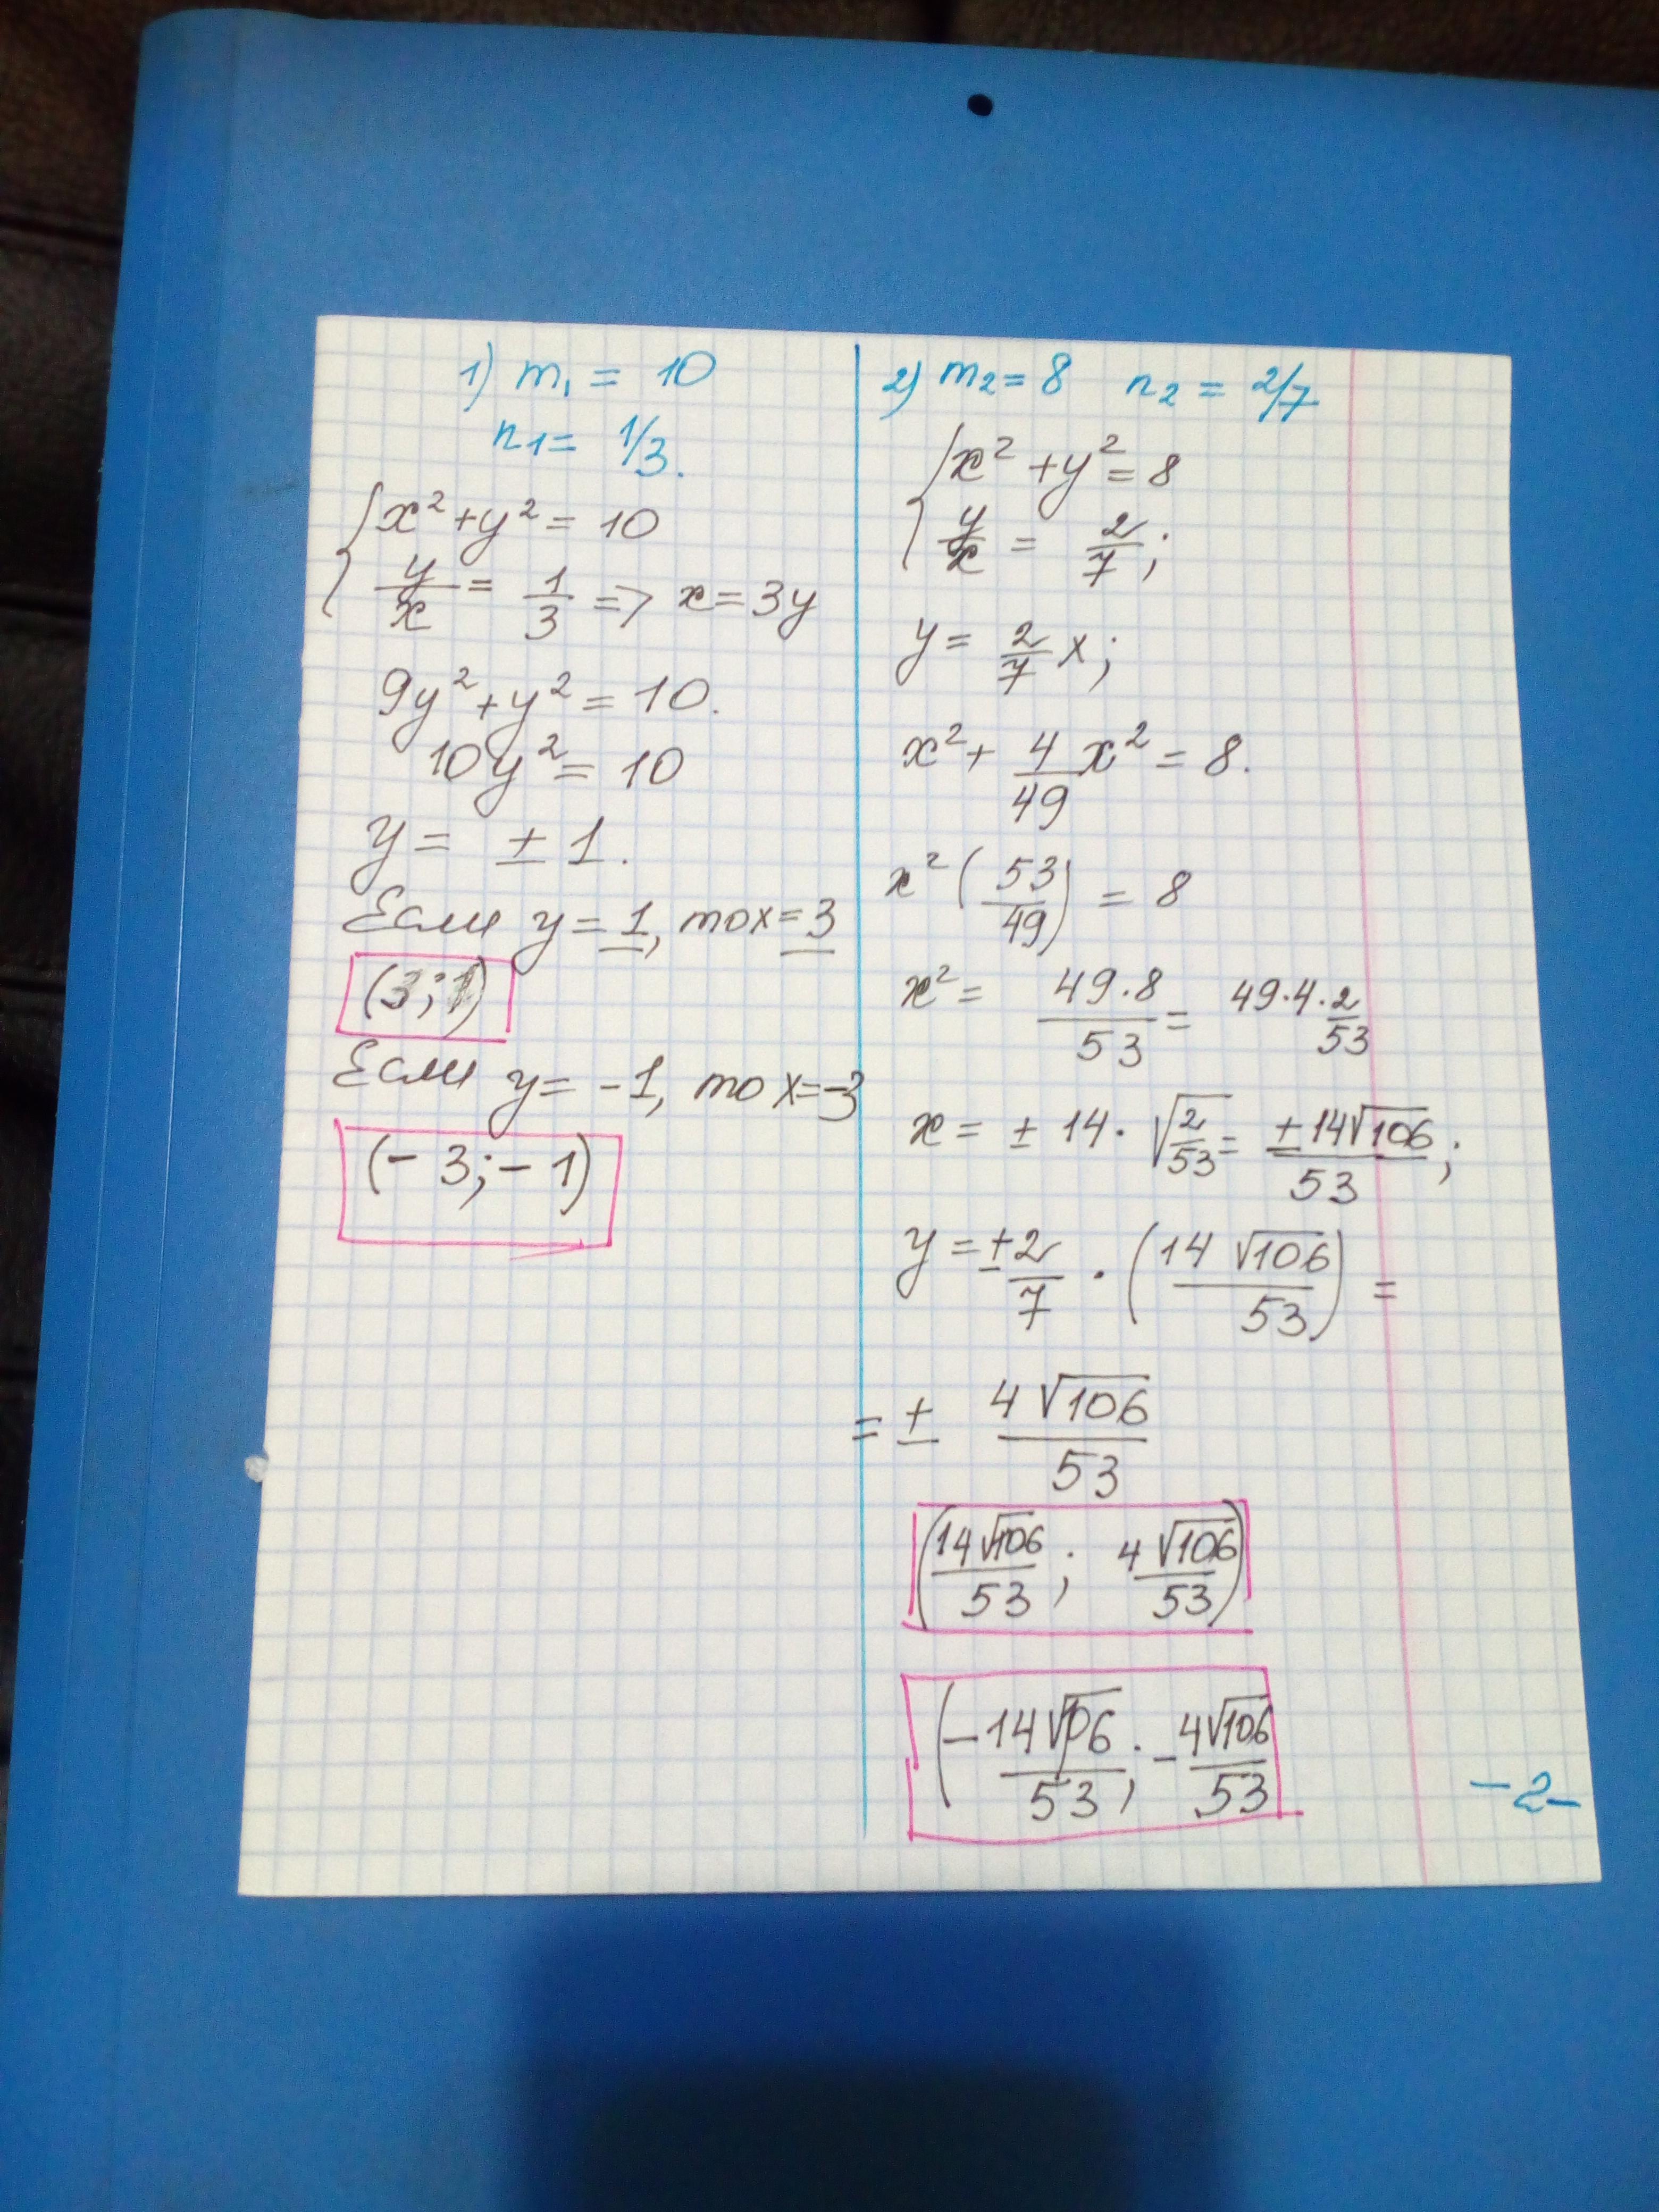 1) m₁ = 10
n₁ = 1/3.
{ x² + y² = 10
y/x = 1/3 => x = 3y
9y² + y² = 10.
10y² = 10
y = ± 1.
Если y = 1, то x = 3
(3; 1)
Если y = -1, то x = -3
(-3; -1)
2) m₂ = 8 n₂ = 2/7
{ x² + y² = 8
y/x = 2/7;
y = 2/7 x;
x² + 4/49 x² = 8.
x² (53/49) = 8
x² = 49·8/53 = 49·4·2/53
x = ± 14 · √(2/53) = ±14√106/53;
y = ± 2/7 · (14√106/53) =
= ± 4√106/53
(14√106/53; 4√106/53)
(-14√106/53; -4√106/53
-2-